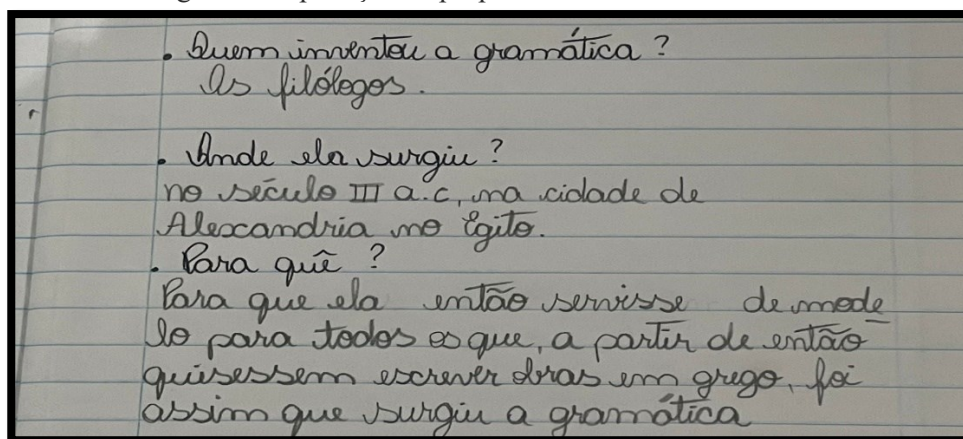 . Quem inventou a gramática?
Os filólogos.
. Onde ela surgiu?
no século III a.c, na cidade de
Alexandria no Egito.
. Para quê?
Para que ela então servisse de mode
lo para todos os que, a partir de então
quisessem escrever obras em grego, foi
assim que surgiu a gramática